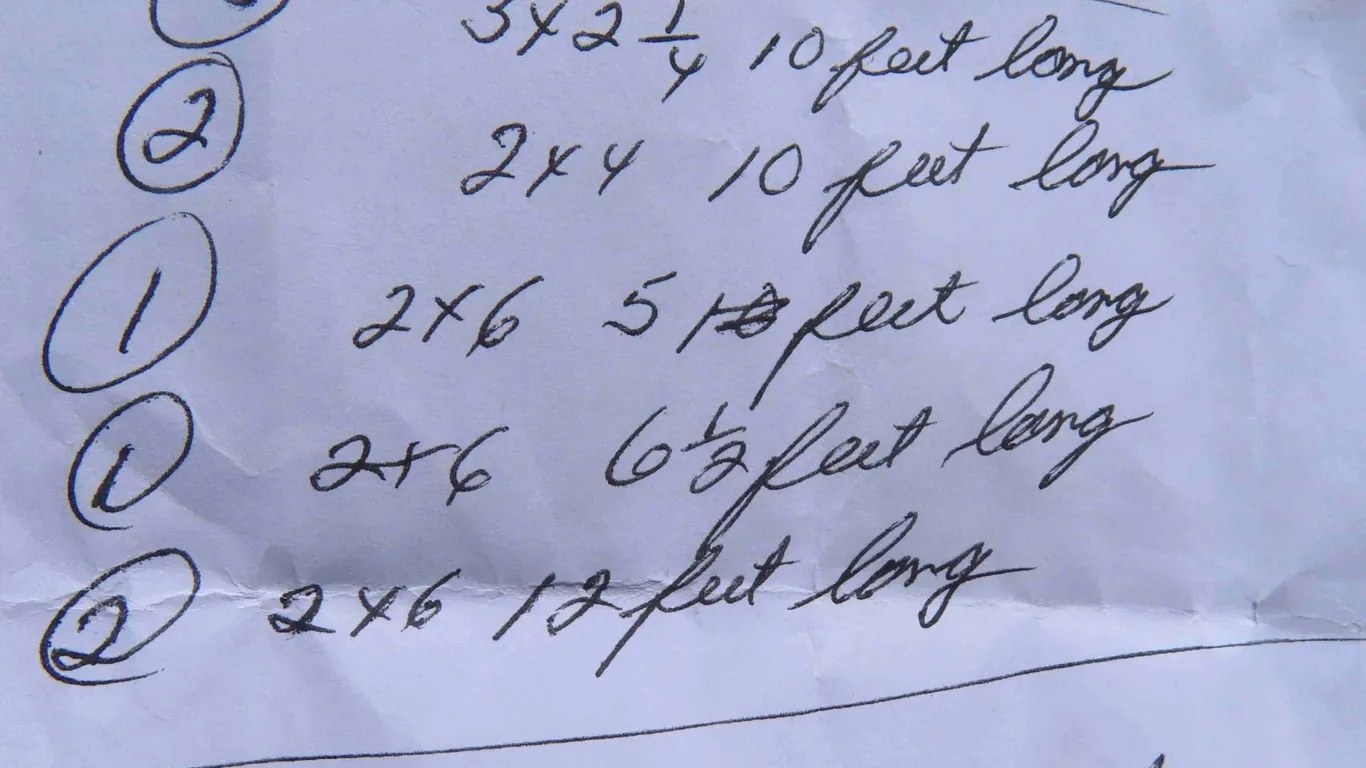 3x2 1/4 10 feet long
2 2x4 10 feet long
1 2x6 5 feet long
1 2x6 6 1/2 feet long
2 2x6 12 feet long